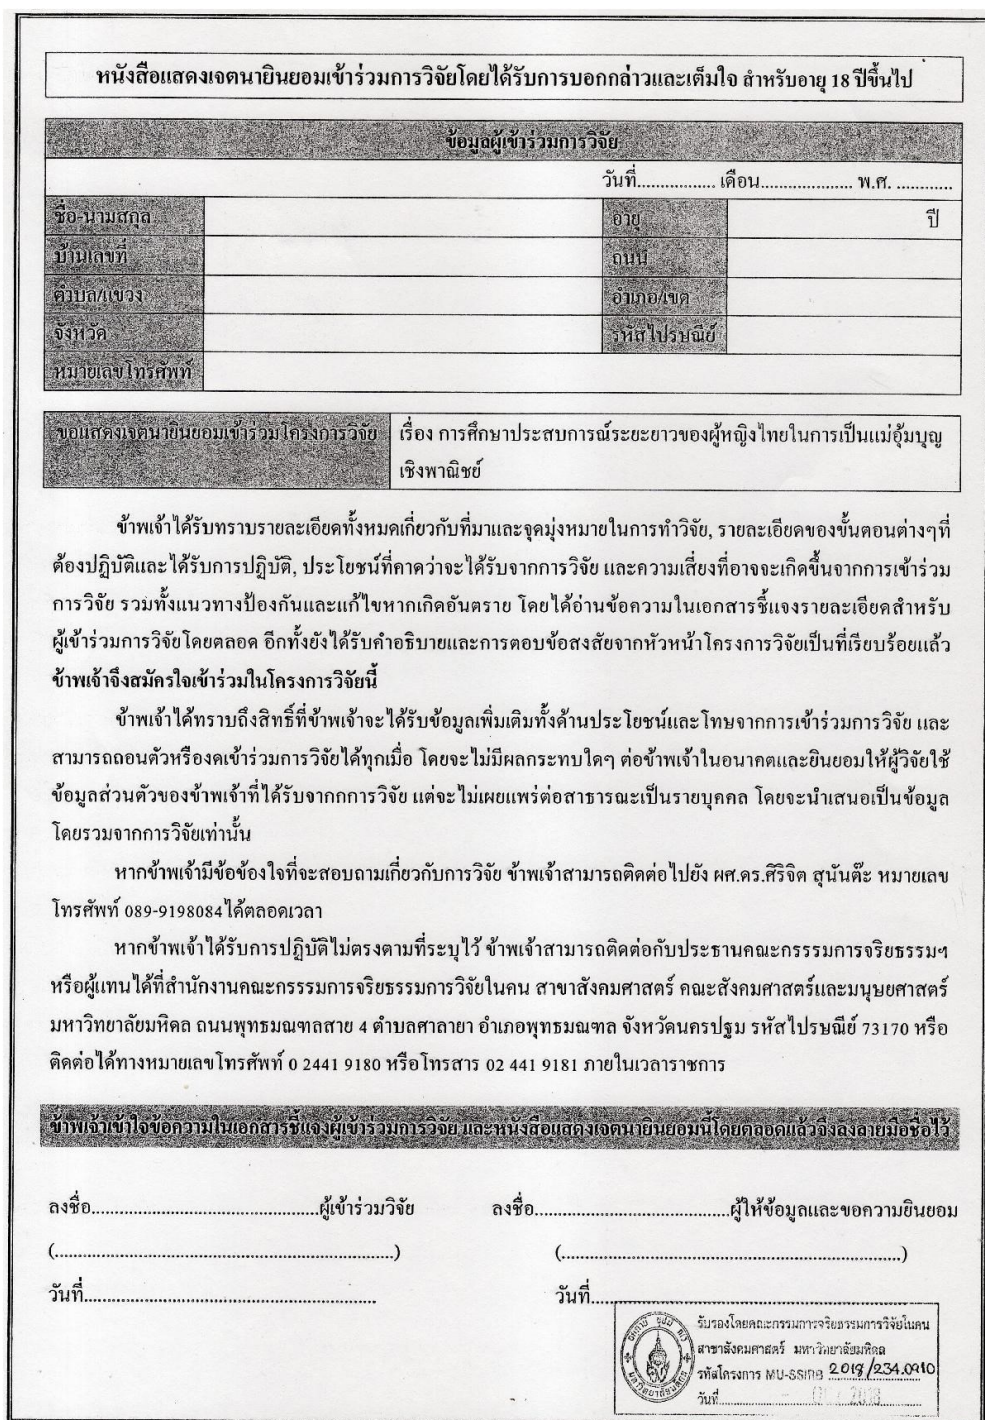 หนังสือแสดงเจตนายินยอมเข้าร่วมการวิจัยโดยได้รับการบอกกล่าวและเต็มใจ สำหรับอายุ 18 ปีขึ้นไป
ข้อมูลผู้เข้าร่วมการวิจัย
วันที่................. เดือน.................... พ.ศ. ............
ชื่อ-นามสกุล อายุ ปี
บ้านเลขที่ ถนน
ตำบล/แขวง อำเภอ/เขต
จังหวัด รหัสไปรษณีย์
หมายเลขโทรศัพท์
ขอแสดงเจตนายินยอมเข้าร่วมโครงการวิจัย เรื่อง การศึกษาประสบการณ์ระยะยาวของผู้หญิงไทยในการเป็นแม่อุ้มบุญ
เชิงพาณิชย์
ข้าพเจ้าได้รับทราบรายละเอียดทั้งหมดเกี่ยวกับที่มาและจุดมุ่งหมายในการทำวิจัย, รายละเอียดของขั้นตอนต่างๆที่
ต้องปฏิบัติและได้รับการปฏิบัติ, ประโยชน์ที่คาดว่าจะได้รับจากการวิจัย และความเสี่ยงที่อาจจะเกิดขึ้นจากการเข้าร่วม
การวิจัย รวมทั้งแนวทางป้องกันและแก้ไขหากเกิดอันตราย โดยได้อ่านข้อความในเอกสารชี้แจงรายละเอียดสำหรับ
ผู้เข้าร่วมการวิจัยโดยตลอด อีกทั้งยังได้รับคำอธิบายและการตอบข้อสงสัยจากหัวหน้าโครงการวิจัยเป็นที่เรียบร้อยแล้ว
ข้าพเจ้าจึงสมัครใจเข้าร่วมในโครงการวิจัยนี้
ข้าพเจ้าได้ทราบถึงสิทธิ์ที่ข้าพเจ้าจะได้รับข้อมูลเพิ่มเติมทั้งด้านประโยชน์และโทษจากการเข้าร่วมการวิจัย และ
สามารถถอนตัวหรืองดเข้าร่วมการวิจัยได้ทุกเมื่อ โดยจะไม่มีผลกระทบใดๆ ต่อข้าพเจ้าในอนาคตและยินยอมให้ผู้วิจัยใช้
ข้อมูลส่วนตัวของข้าพเจ้าที่ได้รับจากกการวิจัย แต่จะไม่เผยแพร่ต่อสาธารณะเป็นรายบุคคล โดยจะนำเสนอเป็นข้อมูล
โดยรวมจากการวิจัยเท่านั้น
หากข้าพเจ้ามีข้อข้องใจที่จะสอบถามเกี่ยวกับการวิจัย ข้าพเจ้าสามารถติดต่อไปยัง ผศ.ดร.ศิริจิต สุนันต๊ะ หมายเลข
โทรศัพท์ 089-9198084 ได้ตลอดเวลา
หากข้าพเจ้าได้รับการปฏิบัติไม่ตรงตามที่ระบุไว้ ข้าพเจ้าสามารถติดต่อกับประธานคณะกรรรมการจริยธรรมฯ
หรือผู้แทนได้ที่สำนักงานคณะกรรรมการจริยธรรมการวิจัยในคน สาขาสังคมศาสตร์ คณะสังคมศาสตร์และมนุษยศาสตร์
มหาวิทยาลัยมหิดล ถนนพุทธมณฑลสาย 4 ตำบลศาลายา อำเภอพุทธมณฑล จังหวัดนครปฐม รหัสไปรษณีย์ 73170 หรือ
ติดต่อได้ทางหมายเลขโทรศัพท์ 0 2441 9180 หรือโทรสาร 02 441 9181 ภายในเวลาราชการ
ข้าพเจ้าเข้าใจข้อความในเอกสารชี้แจงผู้เข้าร่วมการวิจัย และหนังสือแสดงเจตนายินยอมนี้โดยตลอดแล้วจึงลงลายมือชื่อไว้
ลงชื่อ................................................ผู้เข้าร่วมวิจัย ลงชื่อ.........................................ผู้ให้ข้อมูลและขอความยินยอม
(........................................................................) (........................................................................)
วันที่.............................................................. วันที่..............................................................
รับรองโดยคณะกรรมการจริยธรรมการวิจัยในคน
สาขาสังคมศาสตร์ มหาวิทยาลัยมหิดล
รหัสโครงการ MU-SSIRB 2018/234.0910
วันที่